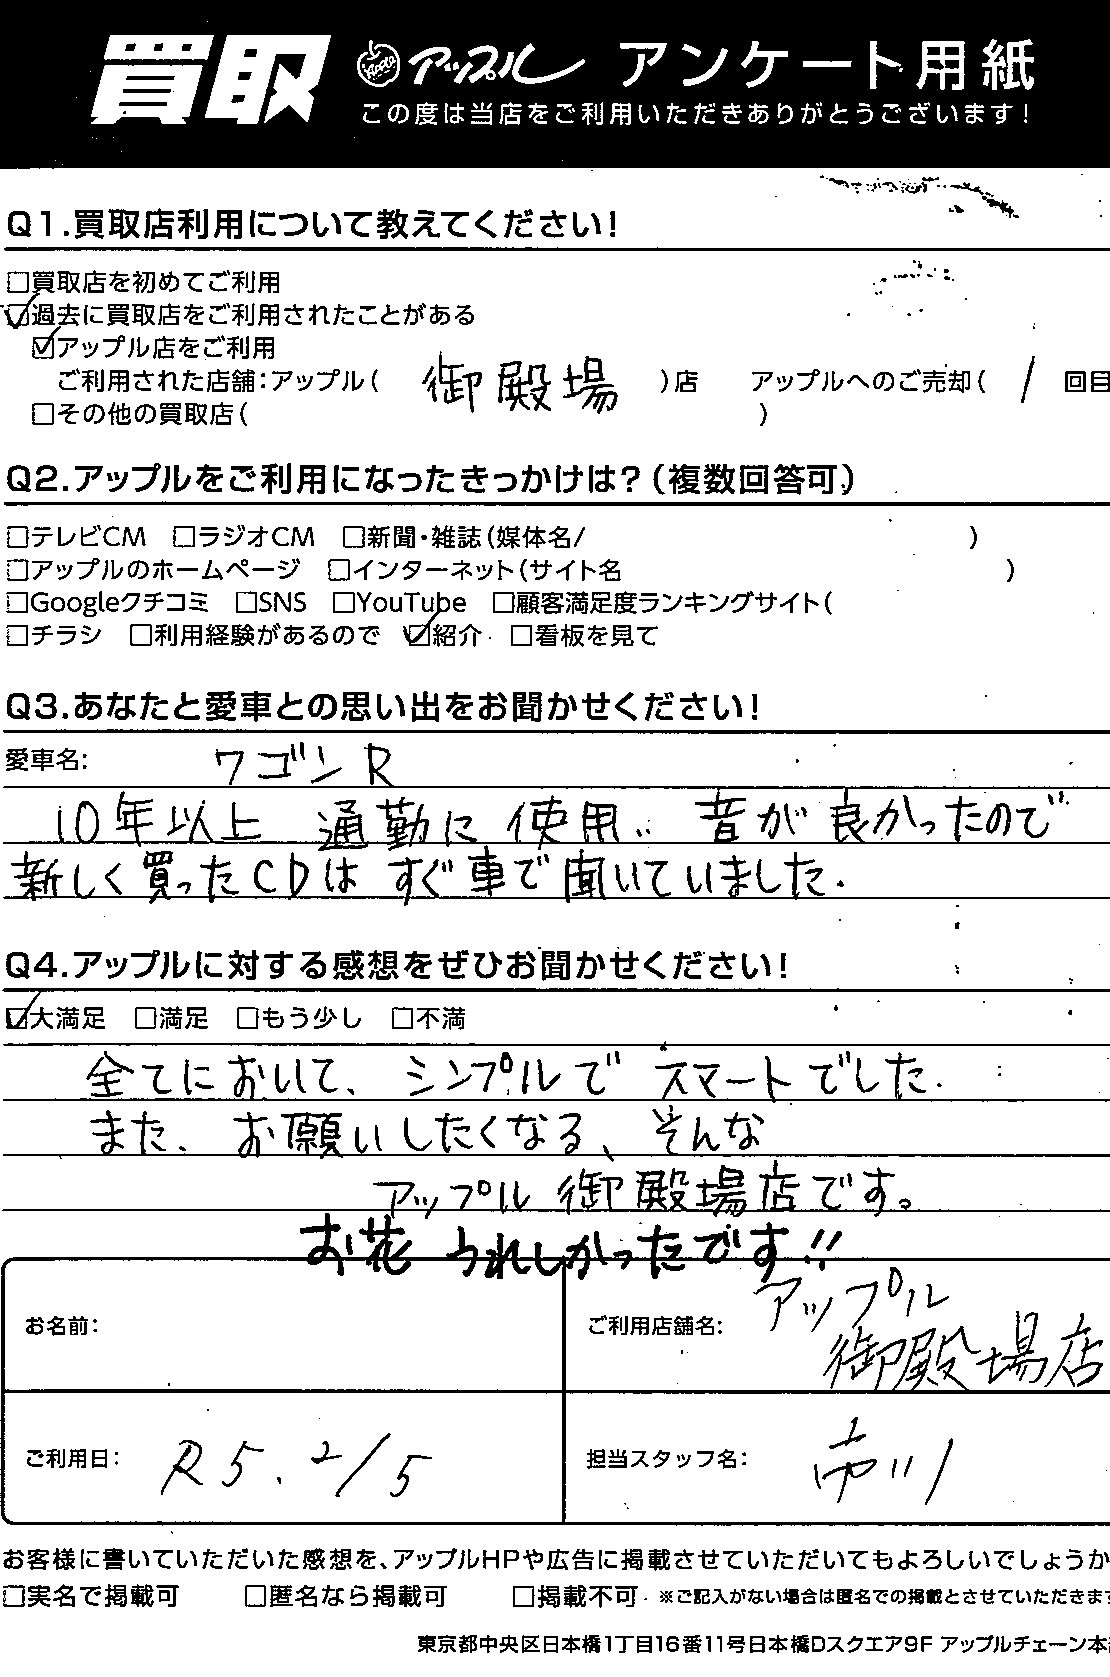 買取 Apple アップル アンケート用紙
この度は当店をご利用いただきありがとうございます!
Q1.買取店利用について教えてください!
□買取店を初めてご利用
☑過去に買取店をご利用されたことがある
☑アップル店をご利用
ご利用された店舗:アップル( 御殿場 )店 アップルへのご売却( 1 回目
□その他の買取店( )
Q2.アップルをご利用になったきっかけは?(複数回答可)
□テレビCM □ラジオCM □新聞・雑誌(媒体名/ )
□アップルのホームページ □インターネット(サイト名 )
□Googleクチコミ □SNS □YouTube □顧客満足度ランキングサイト(
□チラシ □利用経験があるので ☑紹介 □看板を見て
Q3.あなたと愛車との思い出をお聞かせください!
愛車名: ワゴンR
10年以上 通勤に使用.. 音が良かったので
新しく買ったCDは すぐ車で聞いていました.
Q4.アップルに対する感想をぜひお聞かせください!
☑大満足 □満足 □もう少し □不満
全てにおいて、シンプルで スマートでした.
また、お願いしたくなる、そんな
アップル 御殿場店です。
お花 うれしかったです!!
お名前: ご利用店舗名: アップル
御殿場店
ご利用日: R5.2/5 担当スタッフ名: 市川
お客様に書いていただいた感想を、アップルHPや広告に掲載させていただいてもよろしいでしょうか
□実名で掲載可 □匿名なら掲載可 □掲載不可 ※ご記入がない場合は匿名での掲載とさせていただきます
東京都中央区日本橋1丁目16番11号日本橋Dスクエア9F アップルチェーン本